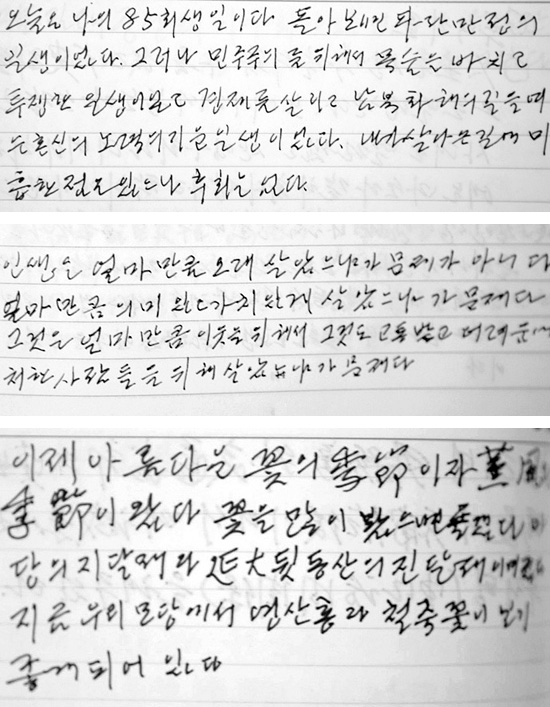 오늘은 나의 85회 생일이다. 돌아보면 파란만장의
일생이었다. 그러나 민주주의를 위해서 목숨을 바치고
투쟁한 일생이었고 경제를 살리고 남북 화해의 길을 여
는 혼신의 노력을 기울인 일생이었다. 내가 살아온 길에 미
흡한 점도 있으나 후회는 없다.
인생은 얼마만큼 오래 살았느냐가 문제가 아니다
얼마만큼 의미 있고 가치있게 살았느냐가 문제다
그것은 얼마만큼 이웃을 위해서 그것도 고통받고 어려움에
처한 사람들을 위해 살았느냐가 문제다
이제 아름다운 꽃의 季節이자 薰風
季節이 왔다 꽃을 많이 봤으면
당의 진달래와 延大 뒷동산의 진달래
지금 우리 마당에서 영산홍과 철쭉꽃이 보기
좋게 피어 있다